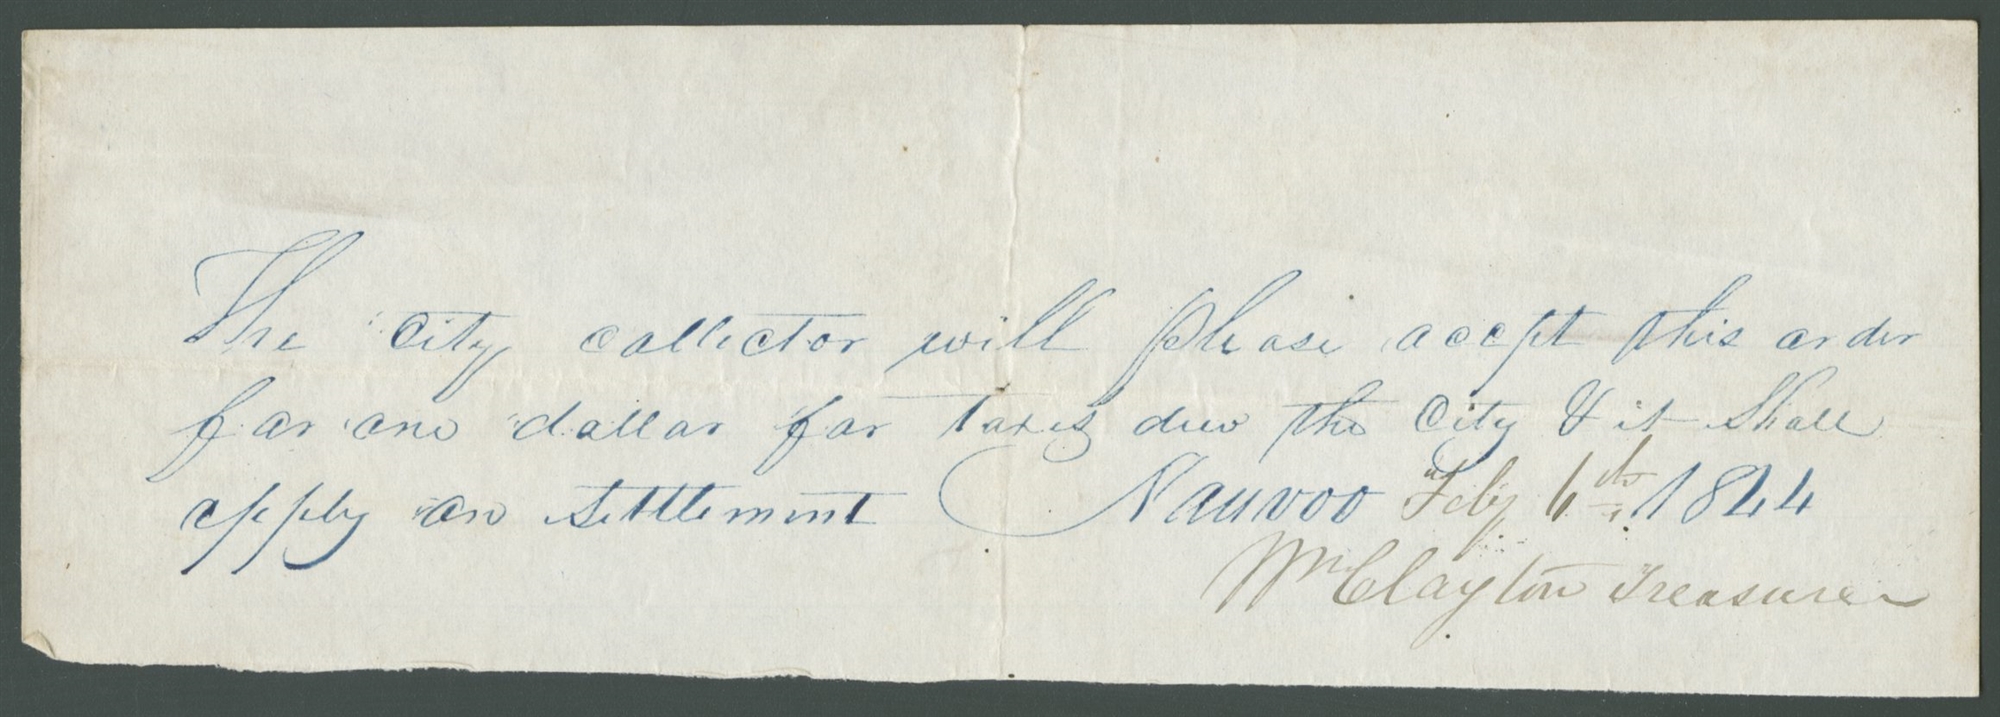 The City collector will please accept this order
for one dollar for taxes due the City & it shall
apply on settlement Nauvoo Feby 6th 1844
Wm Clayton Treasurer